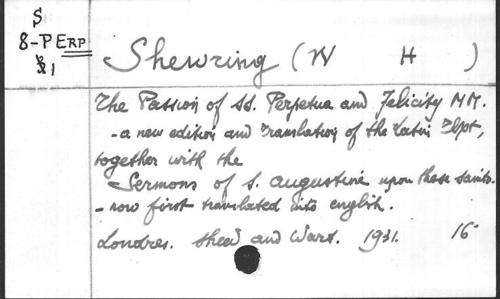 S
8-PERP
Shewring (W H )
The Passion of SS. Perpetua and Felicity MM.
- a new edition and Translation of the Latin Text,
together with the
Sermons of S. Augustine upon these saints.
- now first translated into english.
Londres. Sheed and Ward. 1931. 16°